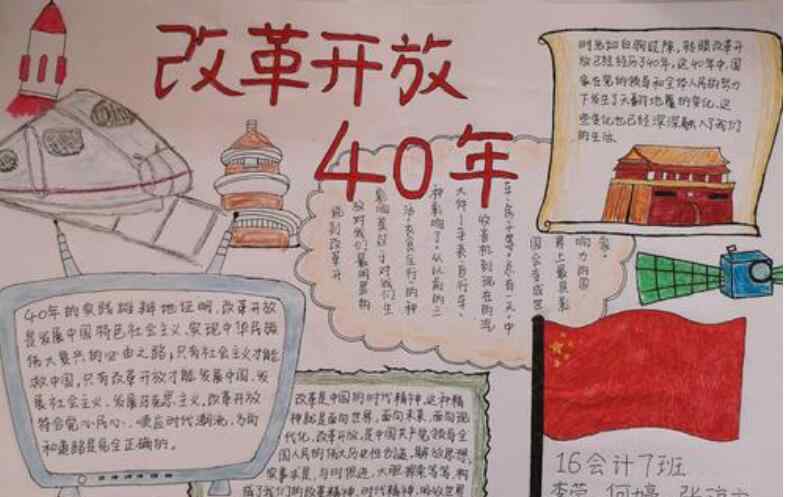 改革开放
40年
时光如白驹过隙，转眼改革开
放已经经历了40年，这40年中，国
家在党的领导和全体人民的努力
下发生了天翻地覆的变化，这
些变化也已经深深融入了我们
的生活。
说到改革开
放对我们最明显的
影响莫过于对我们生
活“衣食住行”的种
种影响了。从以前的三
大件-手表、自行车、
收音机到现在的汽
车、房子等。总有一天，中
国会变成世
界上最具影
响力的国
家。
40年的实践雄辩地证明，改革开放
是发展中国特色社会主义、实现中华民族
伟大复兴的必由之路；只有社会主义才能
救中国，只有改革开放才能发展中国、发
展社会主义、发展马克思主义，改革开放
符合党心民心、顺应时代潮流，方向
和道路是完全正确的。
改革是中国的时代精神，这种精
神就是面向世界，面向未来，面向现
代化。改革开放，是中国共产党领导全
国人民的伟大历史性创造，解放思想，
实事求是，与时俱进，大胆探索等等，构
成了我们的改革精神，时代精神，的放世界
16会计7班